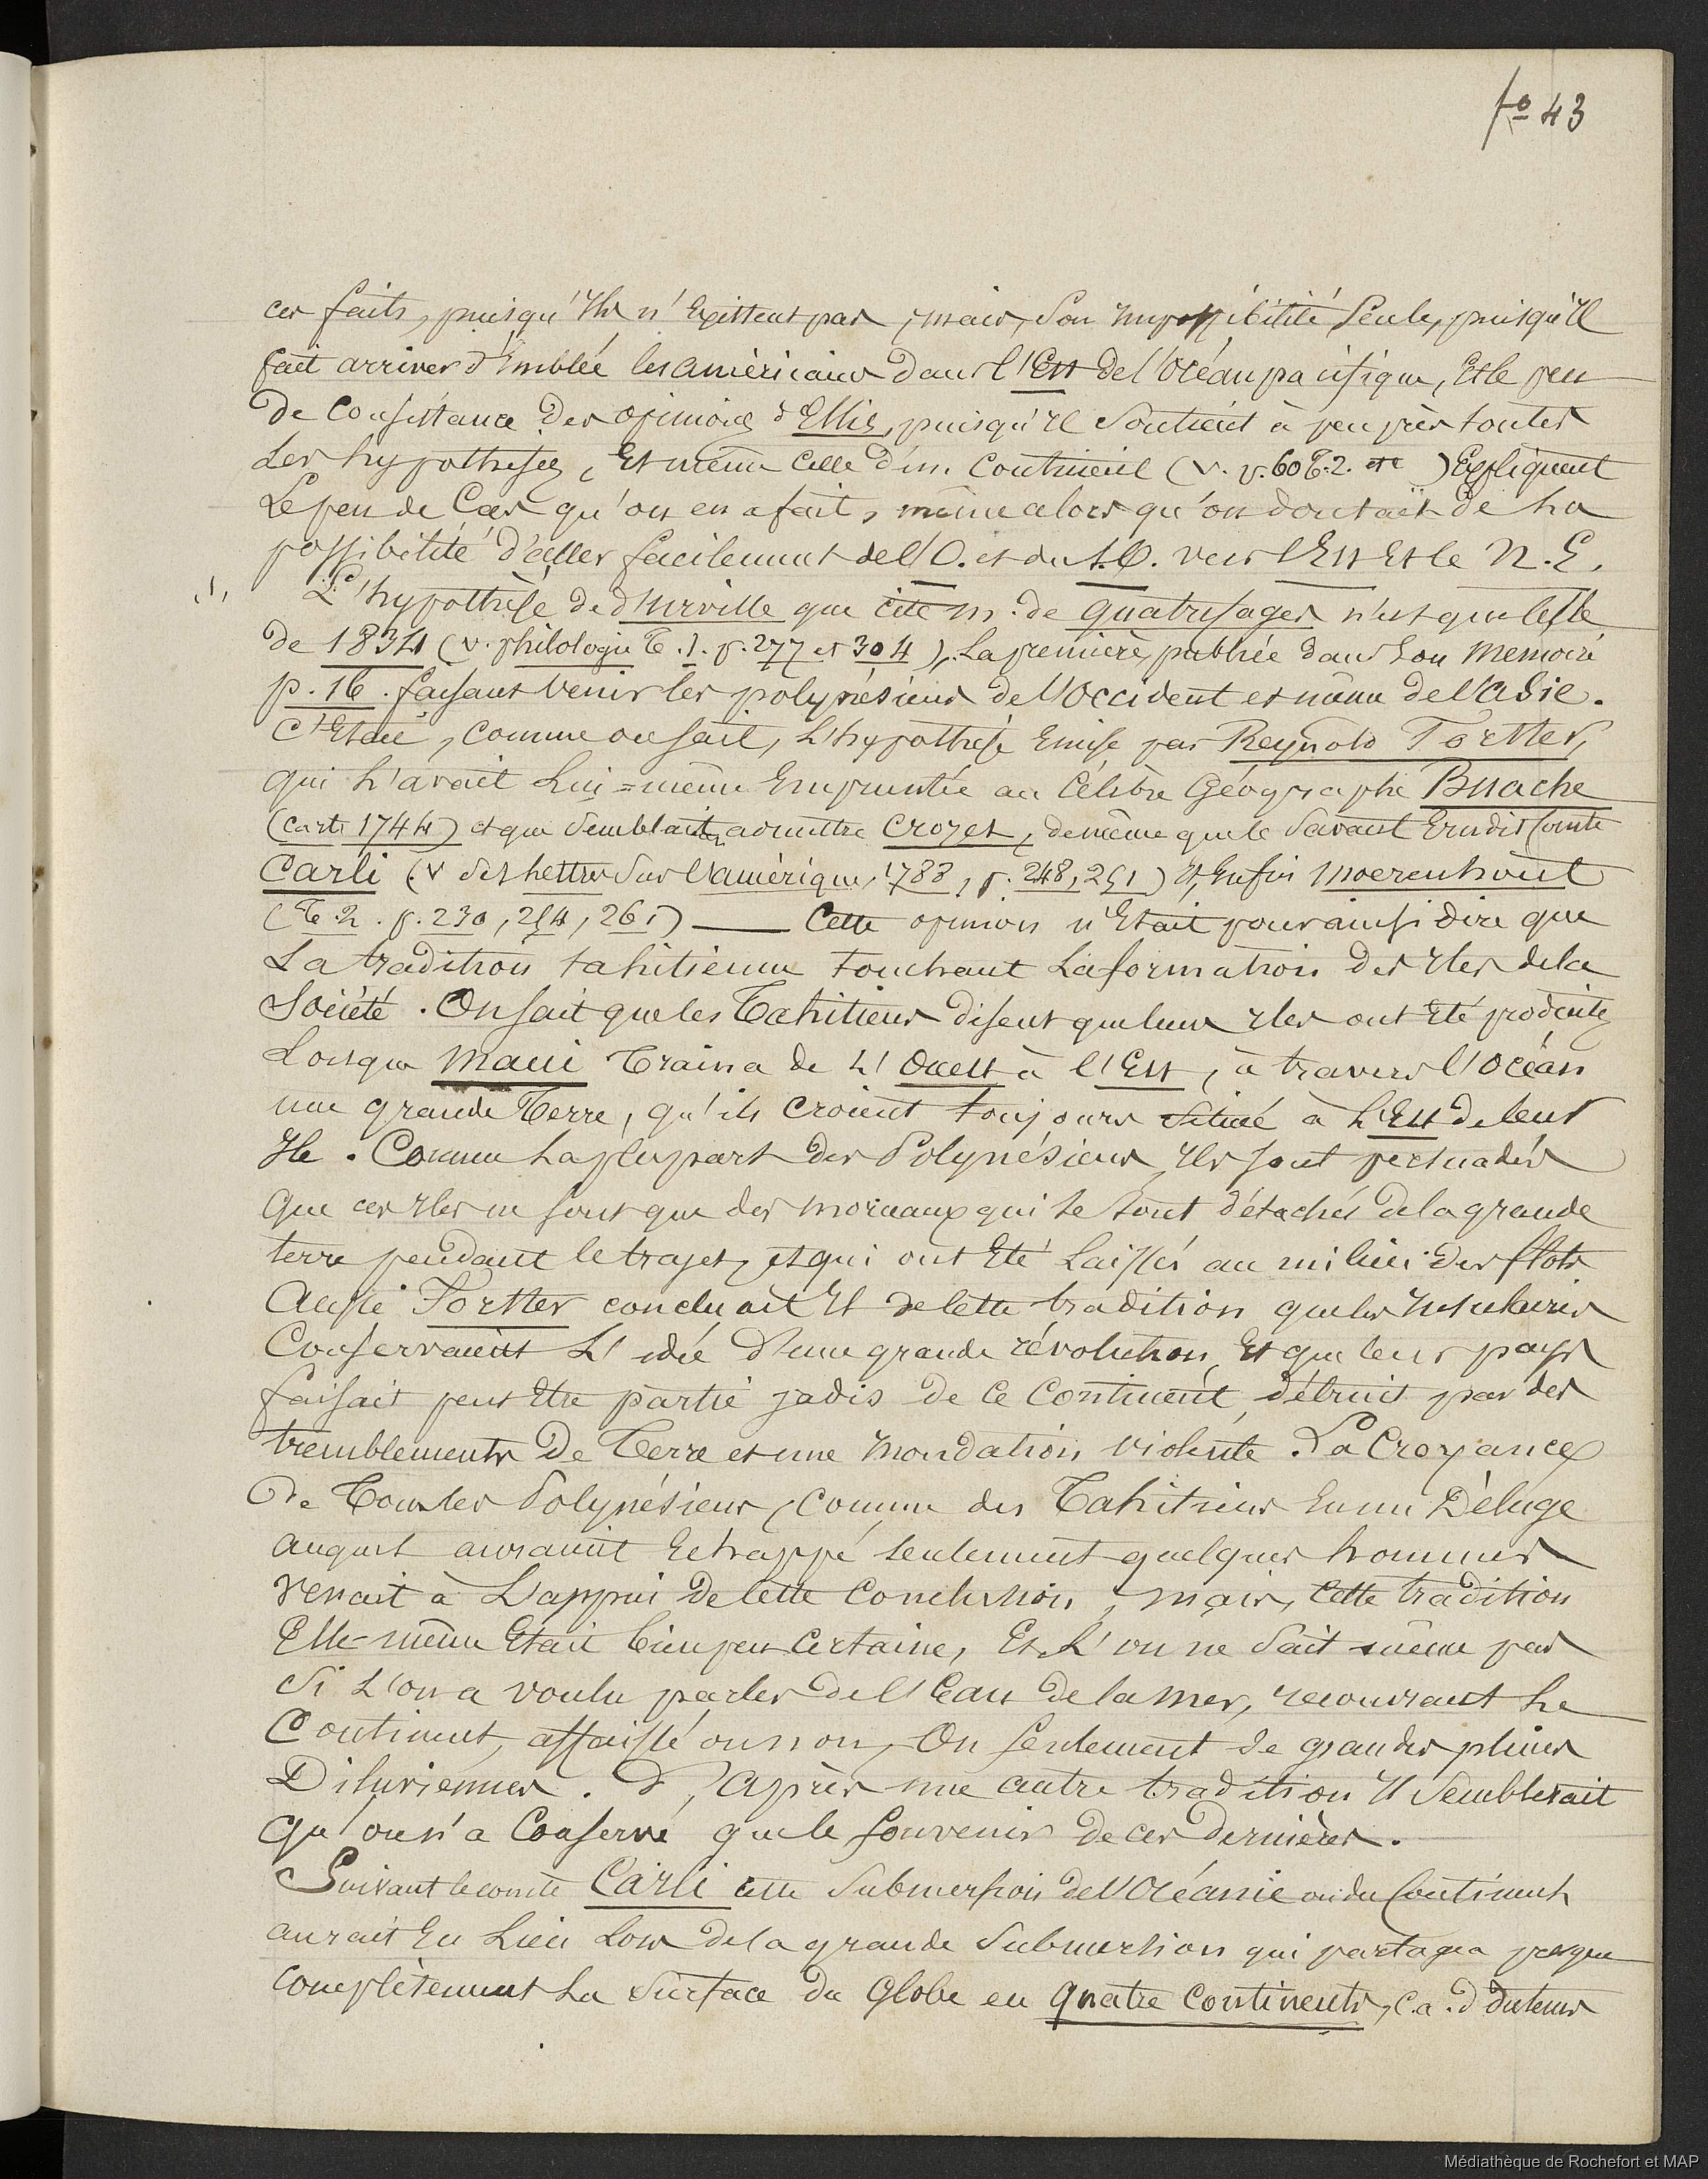 fo 43
ces faits, puisqu'Ils n'Existent pas, mais, Son Impossibilité Seule, puisqu'Il
fait arriver d'Emblée les américains dans l'Est de l'océan pacifique, Et le peu
De Consistance Des opinions d'Ellis, puisqu'Il Soutient à peu près toutes
Les hypothèses, Et même Celle d'un Continent (v. p. 60 T. 2. etc) Expliquent
Le peu de Cas qu'on en a fait, même alors qu'on doutait de La
possibilité d'aller facilement de l'O. et du S.O. vers l'Est Et le N.E.
(1) L'hypothèse de d'Urville que cite M. de Quatrefages n'est que Celle
de 1834 (v. philologie T. 1. p. 277 et 304), La première, publiée dans Son Memoire
p. 16. faisant Venir les polynésiens de l'Occident et même de l'Asie.
C'Etait, comme on sait, L'hypothèse Emise par Reynold Forster,
qui L'avait Lui=même Empruntée au Célèbre Géographe Buache
(Carte 1744) et que Semblait admettre Crozet, de même que le Savant Erudit Comte
Carli (v Ses Lettres Sur l'amérique, 1788, p. 248, 251) Et, Enfin Moerenhout
(T. 2. p. 230, 254, 261) — Cette opinion n'Etait pour ainsi dire que
La tradition tahitienne touchant La formation des Iles de la
Société. On sait que les Tahitiens disent que leurs Iles ont Eté produites
Lorsque Maui Traina de L'Ouest à l'Est, à travers l'Océan
une grande Terre, qu'ils croient toujours Située à L'Est de leur
Ile. Comme La plupart des Polynésiens Ils sont persuadés
Que ces Iles ne sont que des morceaux qui Se Sont détachés de la grande
terre pendant le trajet, et qui ont Eté Laissés au milieu des flots
Aussi Forster concluait Il de Cette tradition que les Insulaires
Conservaient L'idée d'une grande révolution, Et que leur pays
faisait peut Etre partie jadis de Ce Continent détruit par des
tremblements De Terre et une Inondation violente. La Croyance
De Tous les Polynésiens, Comme des Tahitiens En un Déluge
auquel auraient Echappé Seulement quelques hommes
Venait à L'appui de Cette Conclusion ; mais, Cette tradition
Elle=même Etait bien peu Certaine, Et L'on ne Sait même pas
Si L'on a voulu parler de l'Eau de la Mer, recouvrant Le
Continent, affaissé ou non, Ou Seulement de grandes pluies
Diluviennes. D'après une autre tradition Il Semblerait
Qu'on n'a Conservé que le Souvenir de ces Dernières.
Suivant le comte Carli cette Submersion de l'Océanie ou du Continent
aurait Eu Lieu Lors de la grande Submersion qui partagea presque
Complètement La Surface du Globe en Quatre Continents, C.a.d du tems
Médiathèque de Rochefort et MAP